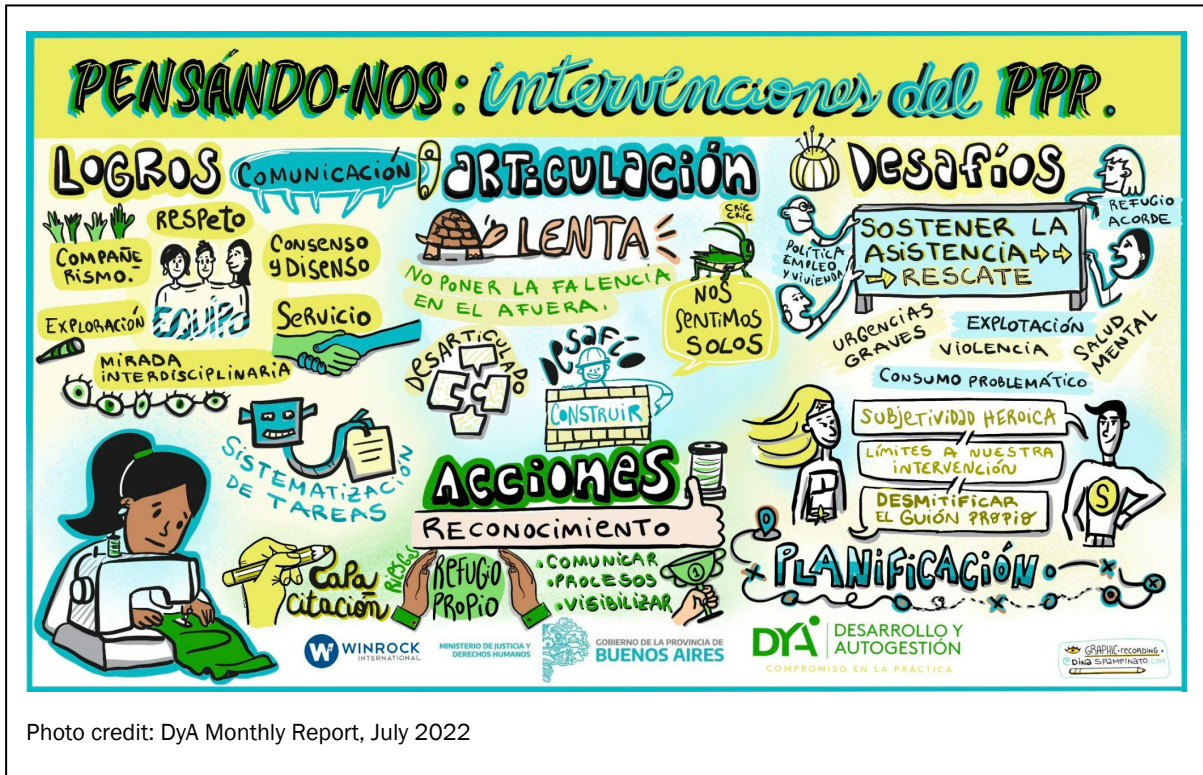 PENSÁNDO-NOS: intervenciones del PPR.
LOGROS
COMUNICACIÓN
RESPETO
COMPAÑE
RISMO.
CONSENSO
Y DISENSO
EQUIPO
EXPLORACIÓN
SERVICIO
MIRADA
INTERDISCIPLINARIA
SISTEMATIZACIÓN
DE TAREAS
CAPA
CITACIÓN
ARTICULACIÓN
LENTA
CRIC
CRIC
NO PONER LA FALENCIA
EN EL AFUERA.
NOS
SENTIMOS
SOLOS
DESARTICULADO
DESAFÍO
CONSTRUIR
ACCIONES
RECONOCIMIENTO
RIESGOS
REFUGIO
PROPIO
•COMUNICAR
•PROCESOS
•VISIBILIZAR
1
DESAFÍOS
REFUGIO
ACORDE
POLÍTICA
EMPLEO
Y VIVIENDA
SOSTENER LA
ASISTENCIA
RESCATE
URGENCIAS
GRAVES
EXPLOTACIÓN
VIOLENCIA
SALUD
MENTAL
CONSUMO PROBLEMÁTICO
SUBJETIVIDAD HEROICA
LÍMITES A NUESTRA
INTERVENCIÓN
DESMITIFICAR
EL GUIÓN PROPIO
S
PLANIFICACIÓN
W WINROCK
INTERNATIONAL
MINISTERIO DE JUSTICIA Y
DERECHOS HUMANOS
GOBIERNO DE LA PROVINCIA DE
BUENOS AIRES
DYA
DESARROLLO Y
AUTOGESTIÓN
COMPROMISO EN LA PRÁCTICA
GRAPHIC•recording•
@DINA SPAMPINATO.COM
Photo credit: DyA Monthly Report, July 2022